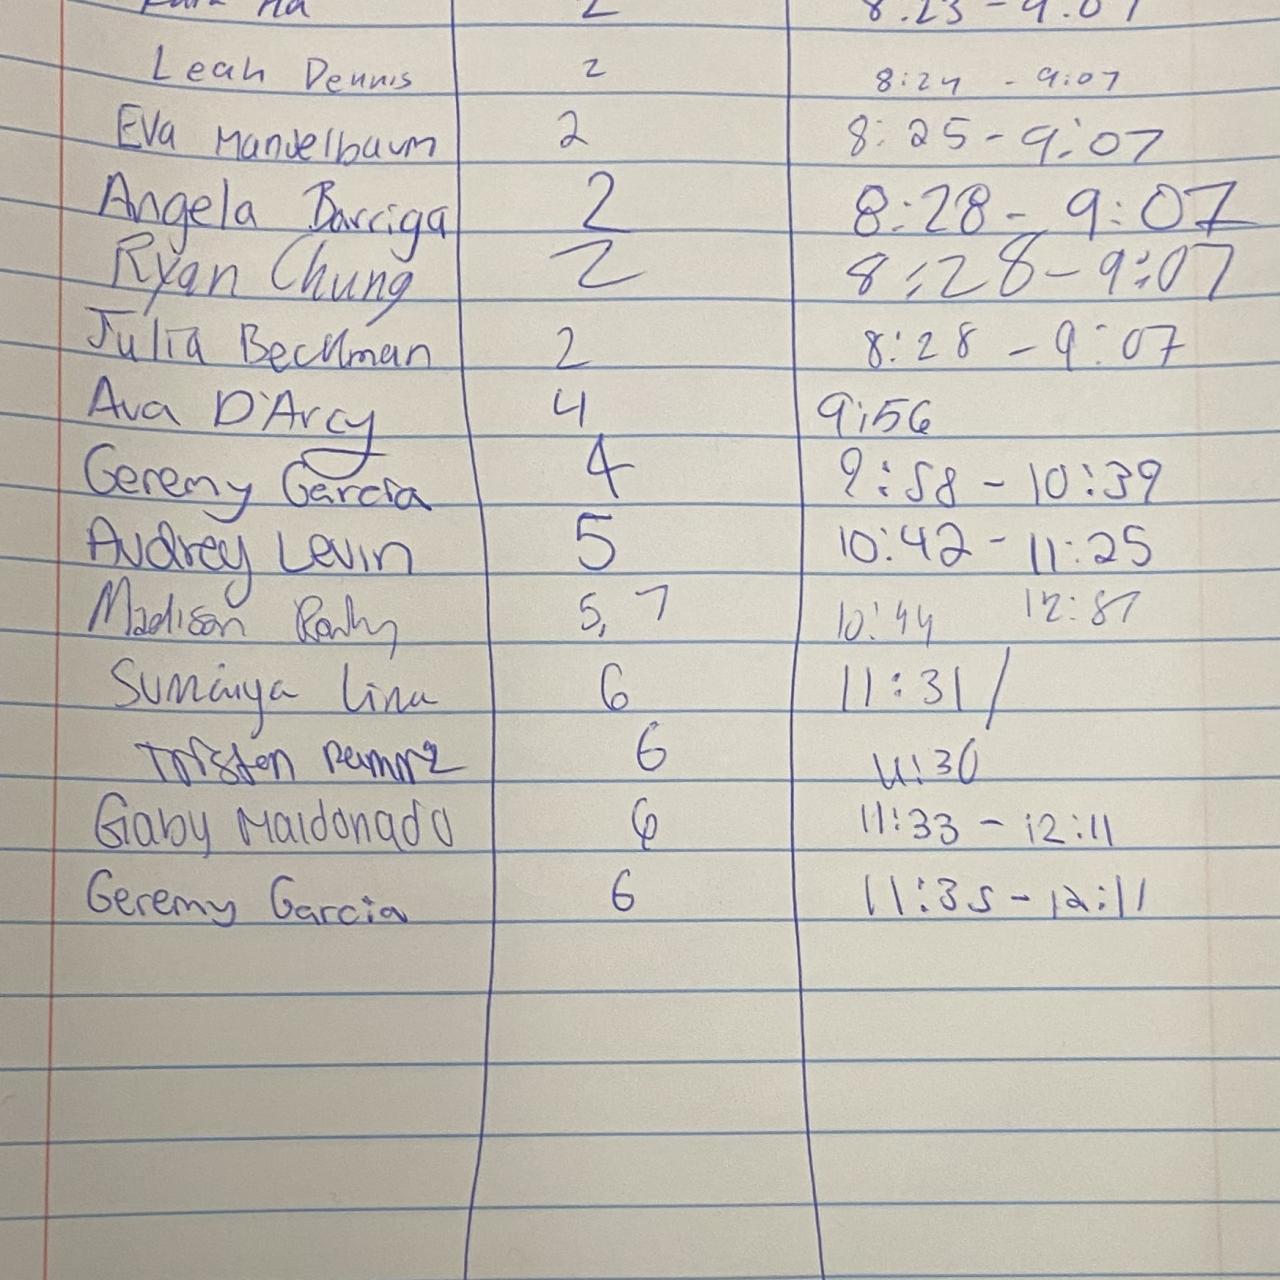 Leah Dennis 2 8:24 - 9:07
Eva Mandelbaum 2 8:25 - 9:07
Angela Barriga 2 8:28 - 9:07
Ryan Chung 2 8:28 - 9:07
Julia Beckman 2 8:28 - 9:07
Ava D'Arcy 4 9:56
Geremy Garcia 4 9:58 - 10:39
Audrey Levin 5 10:42 - 11:25
Madison 5, 7 10:44
Sumaiya 6 11:31 /
6 11:30
Gaby Maldonado 6 11:33 - 12:11
Geremy Garcia 6 11:35 - 12:11